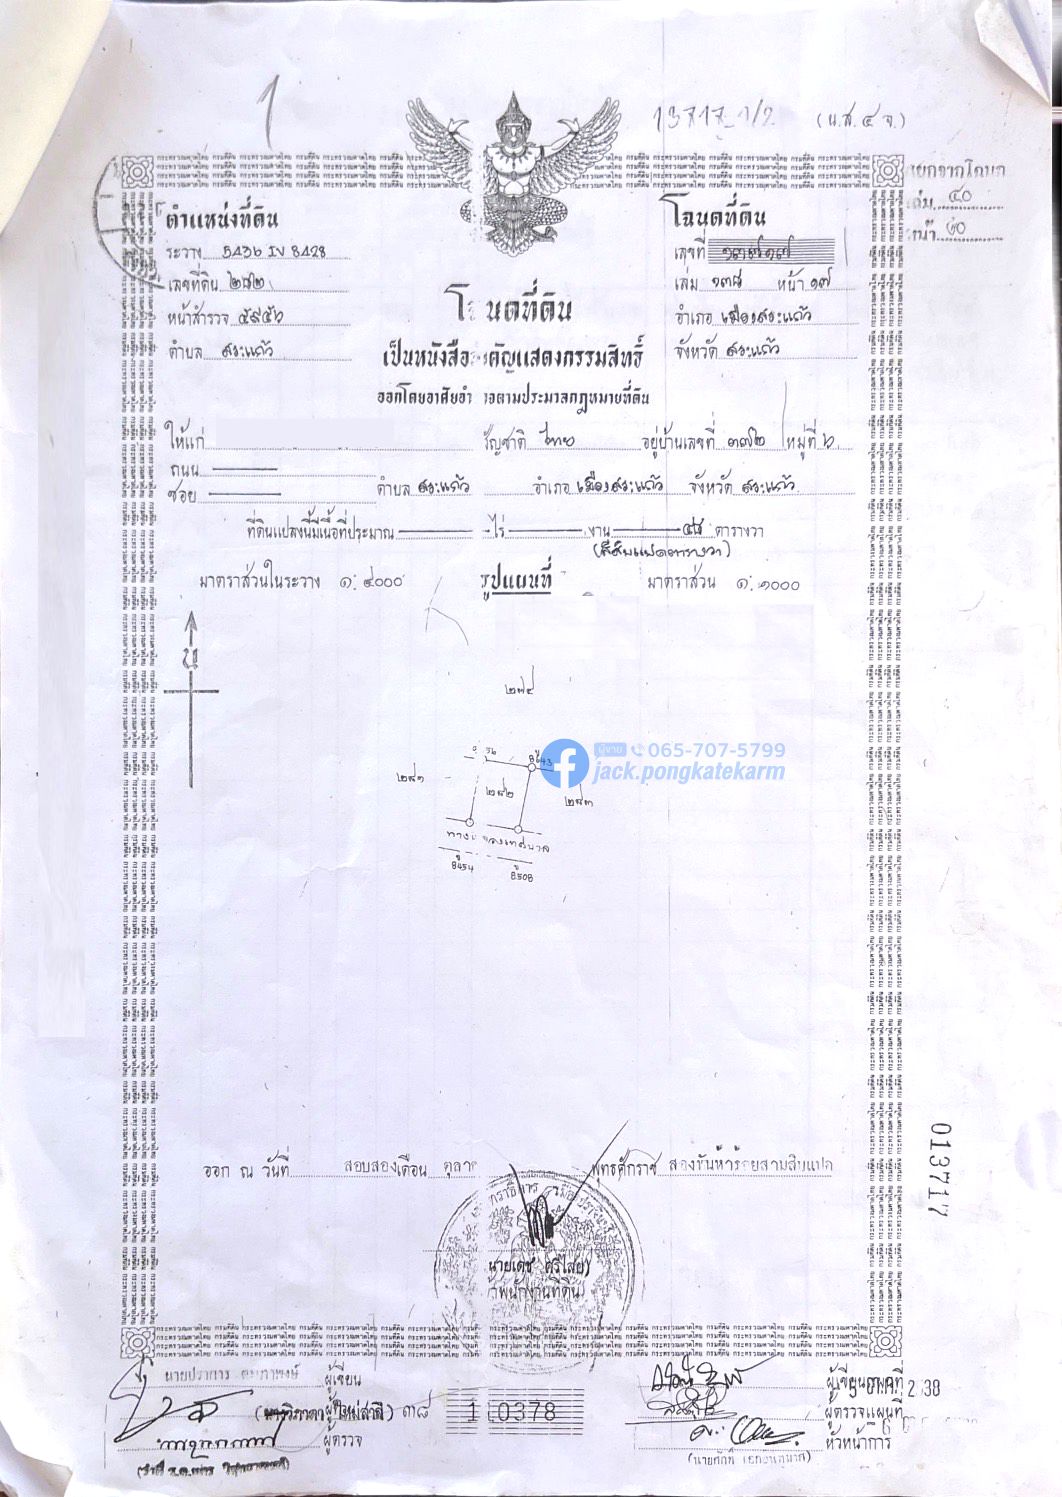 1
13717 ๑/2 (น.ส.๔ จ.)
เล่ม ๔๐
หน้า ๖๐
ตำแหน่งที่ดิน
โฉนดที่ดิน
ระวาง 5436 IV 8428
เลขที่ ๑๓๗๑๗
เลขที่ดิน ๒๘๒
เล่ม ๑๓๘ หน้า ๑๗
หน้าสำรวจ ๕๙๕๖
อำเภอ เมืองสระแก้ว
ตำบล สระแก้ว
จังหวัด สระแก้ว
โ นดที่ดิน
เป็นหนังสือ คัญแสดงกรรมสิทธิ์
ออกโดยอาศัยอำ าจตามประมวลกฎหมายที่ดิน
ให้แก่ สัญชาติ ไทย อยู่บ้านเลขที่ ๓๗๒ หมู่ที่ ๖
ถนน
ซอย ตำบล สระแก้ว อำเภอ เมืองสระแก้ว จังหวัด สระแก้ว
ที่ดินแปลงนี้มีเนื้อที่ประมาณ ไร่ งาน ๔๘ ตารางวา
(สี่สิบแปดตารางวา)
มาตราส่วนในระวาง ๑:๔๐๐๐ รูปแผนที่ มาตราส่วน ๑:๑๐๐๐
น
๒๗๔
ผู้ขาย 065-707-5799
jack.pongkatekarm
๒๘๑
๒๘๒
๒๘๓
ทาง ของเทศบาล
8454
8508
ออก ณ วันที่ สิบสองเดือน ตุลา พุทธศักราช สองพันห้าร้อยสามสิบแปด
นายเดช ศรีไสย
พนักงานที่ดิน
013717
ผู้เขียน
ผู้เขียนแผนที่
๓๘
1 0378
ผู้ตรวจแผนที่
ผู้ตรวจ
หัวหน้าการ